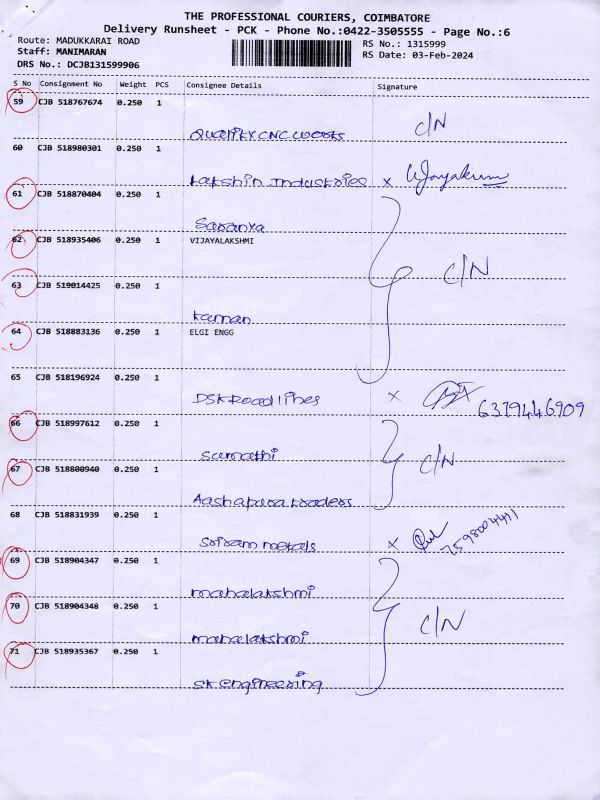 THE PROFESSIONAL COURIERS, COIMBATORE
Delivery Runsheet - PCK - Phone No.:0422-3505555 - Page No.:6
Route: MADUKKARAI ROAD
Staff: MANIMARAN
DRS No.: DCJB131599906
RS No.: 1315999
RS Date: 03-Feb-2024
S No Consignment No Weight PCS Consignee Details Signature
59 CJB 518767674 0.250 1
Quality CNC Works C/N
60 CJB 518980301 0.250 1
Lakshin Industries x Vijayakumar
61 CJB 518870404 0.250 1
Saranya
62 CJB 518935406 0.250 1 VIJAYALAKSHMI
C/N
63 CJB 519014425 0.250 1
Kannan
64 CJB 518883136 0.250 1 ELGI ENGG
65 CJB 518196924 0.250 1
DSK Roadlines x 6379446909
66 CJB 518997612 0.250 1
Sumathi C/N
67 CJB 518800940 0.250 1
Aashapura traders
68 CJB 518831939 0.250 1
Sriram metals x
69 CJB 518904347 0.250 1
mahalakshmi
70 CJB 518904348 0.250 1
mahalakshmi C/N
71 CJB 518935367 0.250 1
SK engineering